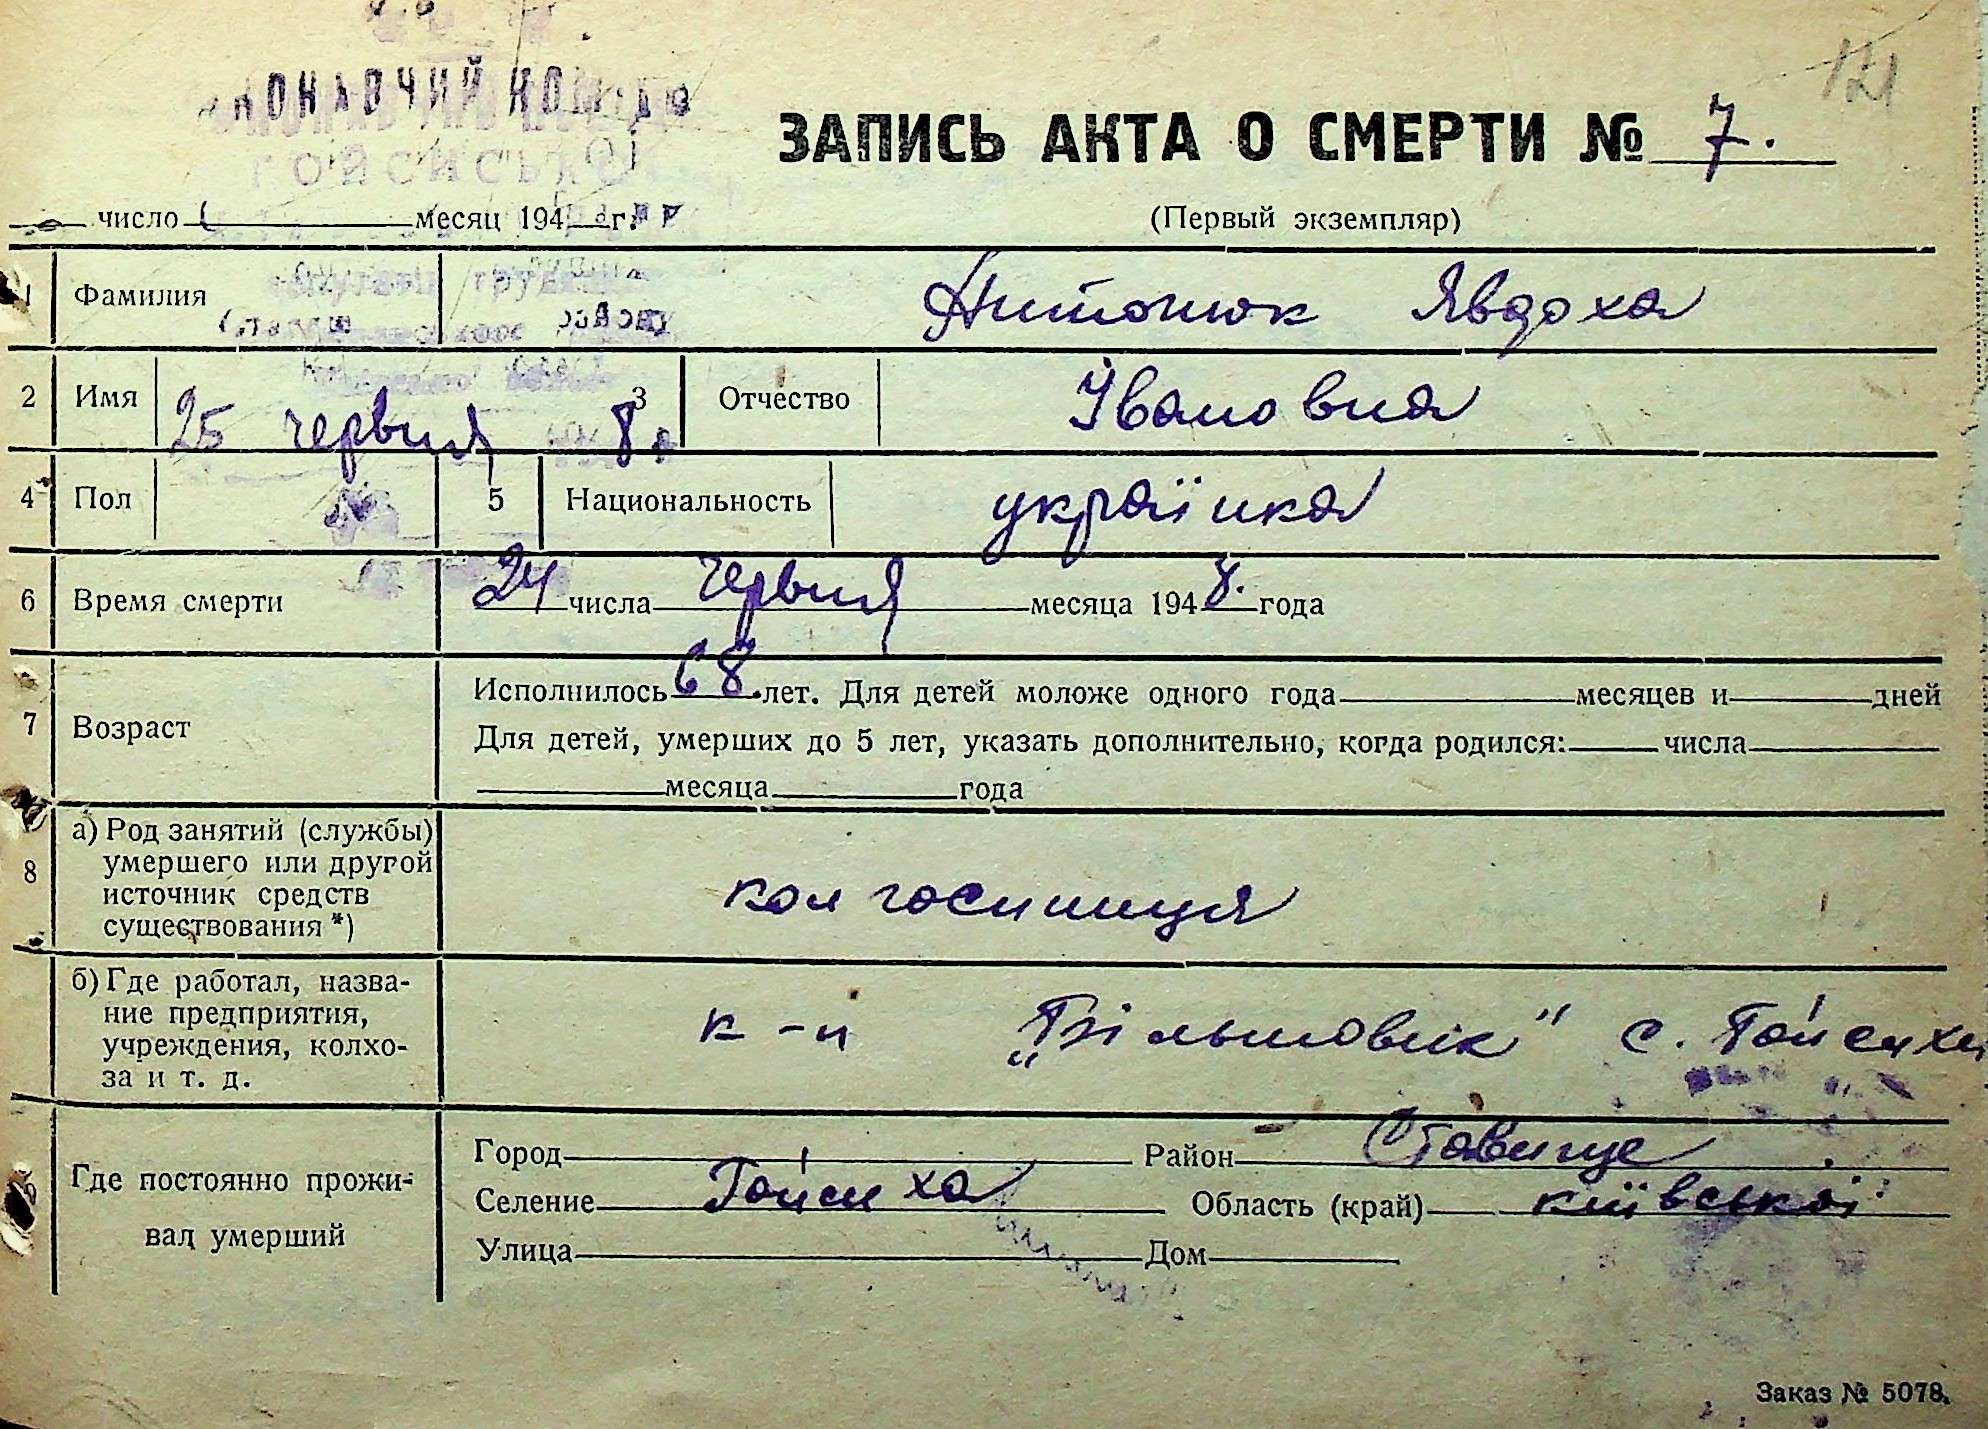 121
ЗАПИСЬ АКТА О СМЕРТИ № 7.
число месяц 194 г.
(Первый экземпляр)
1 Фамилия Антонюк Явдоха
2 Имя 3 Отчество Івановна
25 червня 8
4 Пол 5 Национальность українка
6 Время смерти 24 числа червня месяца 1948. года
7 Возраст
Исполнилось 68 лет. Для детей моложе одного года месяцев и дней
Для детей, умерших до 5 лет, указать дополнительно, когда родился: числа
месяца года
8
а) Род занятий (службы)
умершего или другой
источник средств
существования *)
колгоспниця
б) Где работал, назва-
ние предприятия,
учреждения, колхо-
за и т. д.
к-п „Більшовик" с. Гойсиха
Где постоянно прожи-
вал умерший
Город Район Ставище
Селение Гойсиха Область (край) київської
Улица Дом
Заказ № 5078.